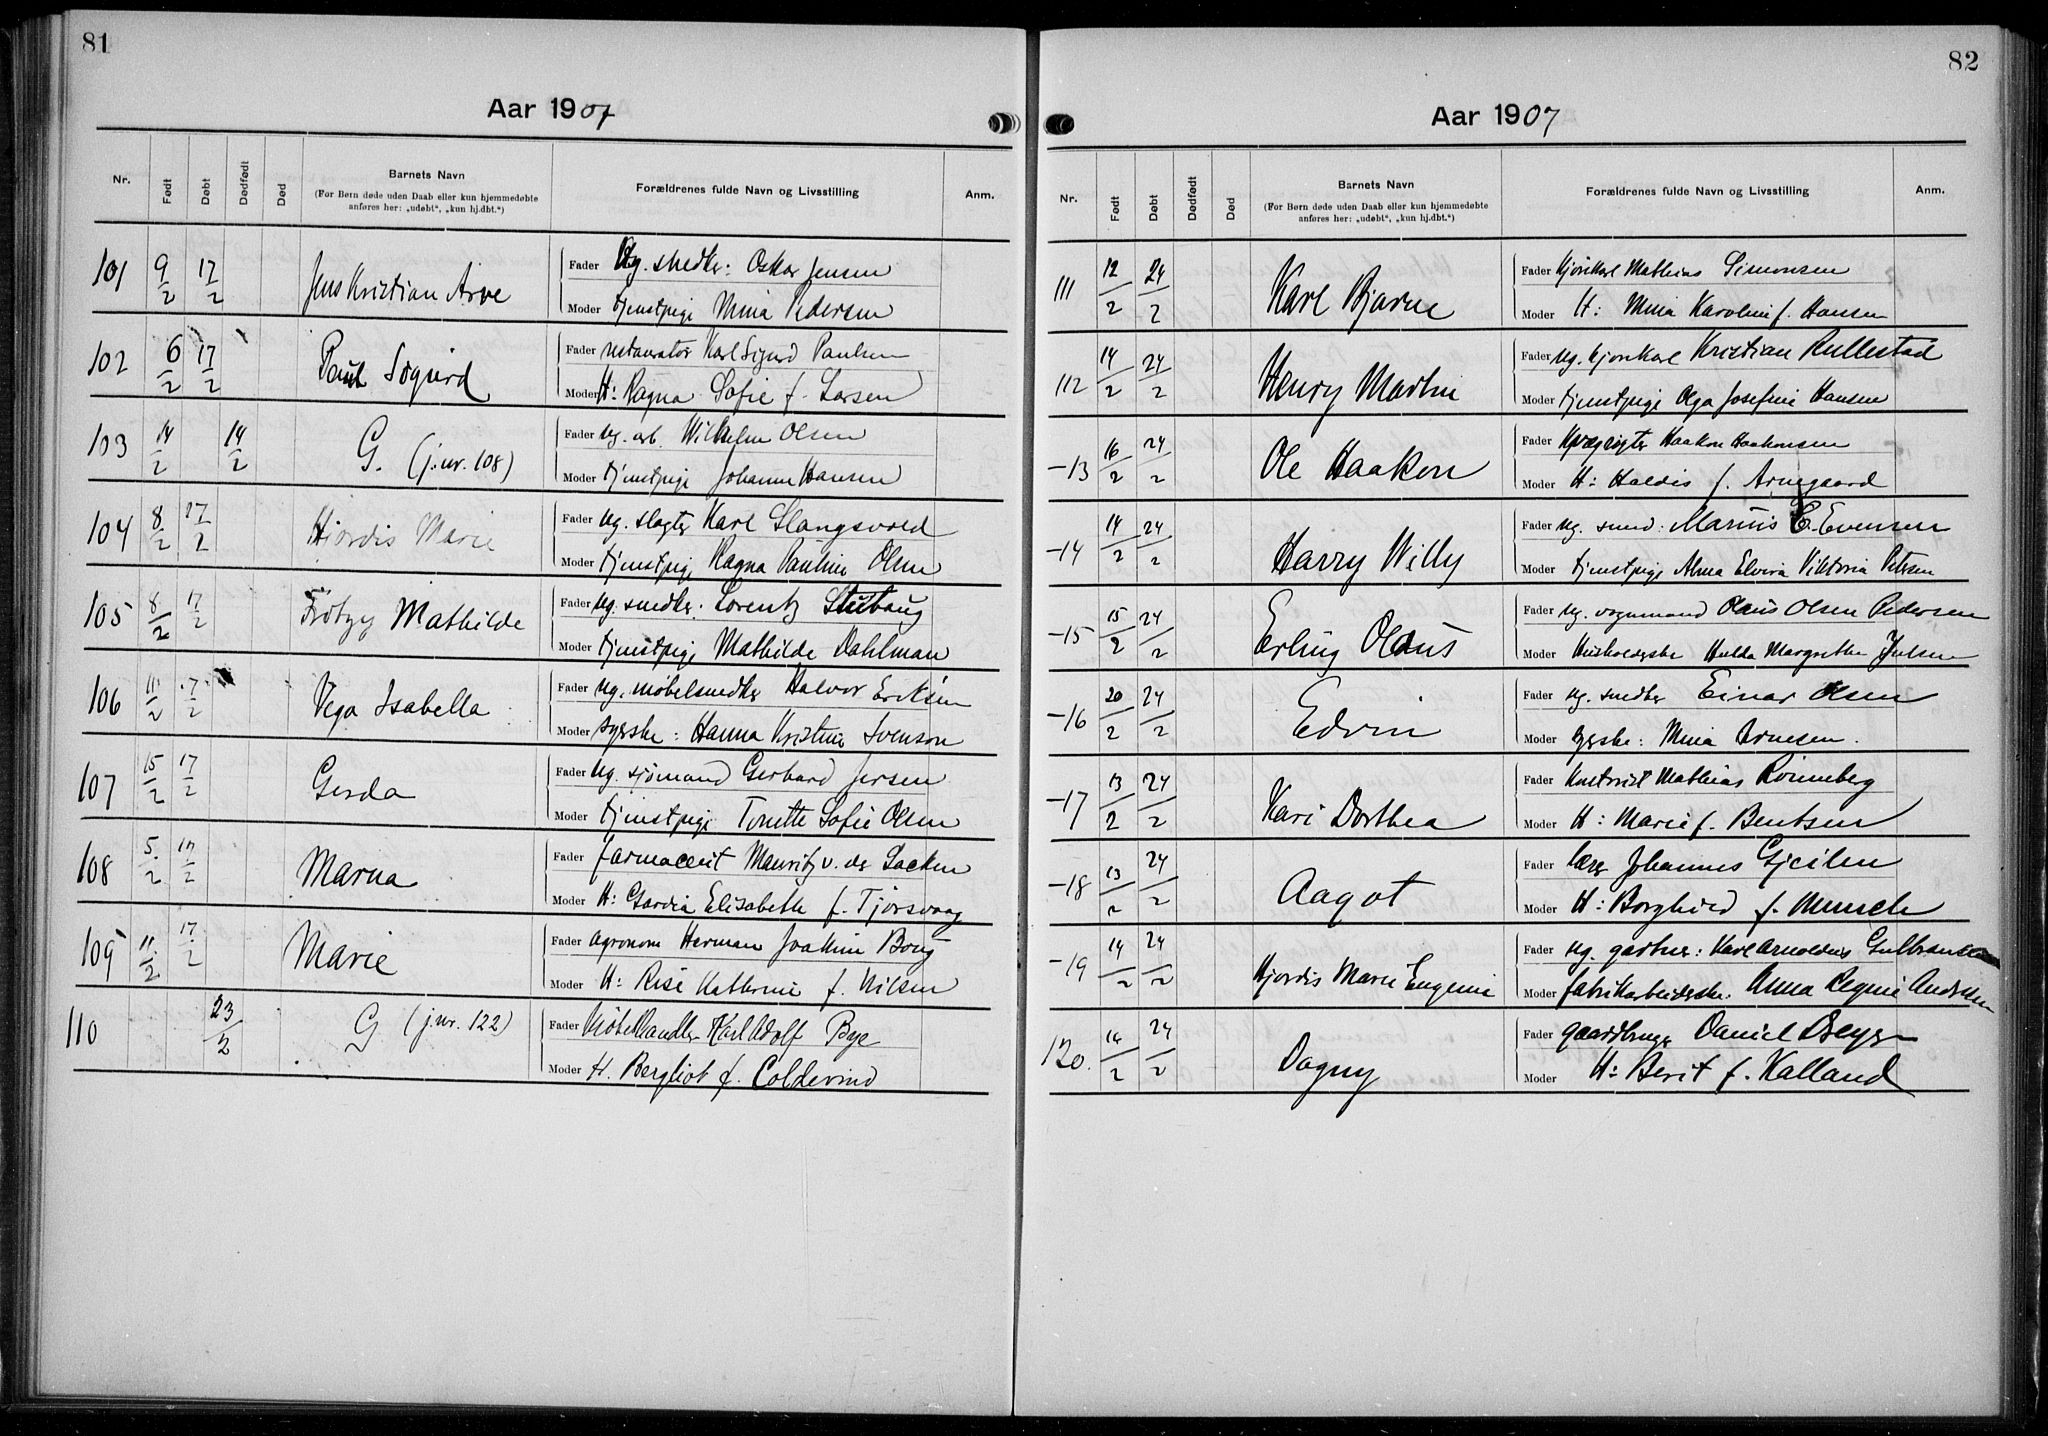 81
Aar 1907
Nr.
Født
Døbt
Dødfødt
Død
Barnets Navn
(For Børn døde uden Daab eller kun hjemmedøbte
anføres her: „udøbt“, „kun hj.dbt.“)
Forældrenes fulde Navn og Livsstilling
Anm.
101 9/2 17/2 Jens Kristian Arve
Fader Ug. snedker: Oskar Jensen
Moder tjenstpige Mina Pedersen
102 6/2 17/2 Paul Sigurd
Fader restauratør Karl Sigurd Paulsen
Moder H: Ragna Sofie f. Larsen
103 14/2 14/2 G. (j.nr. 108)
Fader ug. arb. Wilhelm Olsen
Moder tjenstpige Johanne Hansen
104 8/2 17/2 Hjørdis Marie
Fader ug. slagter Karl Slangsvold
Moder tjenstpige Ragna Pauline Olsen
105 8/2 17/2 Mathilde
Fader ug. snedker: Lorentz Stubaug
Moder tjenstpige Mathilde Dahlman
106 11/2 17/2 Vega Isabella
Fader ug. møbelsnedker Halvor Eriksen
Moder syerske: Hanna Kristine Svenson
107 15/2 17/2 Gerda
Fader ug. sjømand Gerhard Jensen
Moder tjenstpige Tonette Sofie Olsen
108 5/2 17/2 Marna
Fader farmaceut Mauritz v. der Lacken
Moder H: Elisabeth f. Tjorsvaag
109 11/2 17/2 Marie
Fader agronom Herman Joakim Borg
Moder H: Katherine f. Nilsen
110 23/2 G (j.nr. 122)
Fader Møbelhandler Karl Adolf Bye
Moder H. Bergliot f. Coldevind
82
Aar 1907
Nr.
Født
Døbt
Dødfødt
Død
Barnets Navn
(For Børn døde uden Daab eller kun hjemmedøbte
anføres her: „udøbt“, „kun hj.dbt.“)
Forældrenes fulde Navn og Livsstilling
Anm.
111 12/2 24/2 Karl Bjarne
Fader Kjørekarl Mathias Simonsen
Moder H: Mina Karoline f. Hansen
112 14/2 24/2 Henry Martin
Fader ug. kjørekarl Kristian Rullestad
Moder tjenstpige Olga Josefine Hansen
-13 16/2 24/2 Ole Haakon
Fader Kvægrøgter Haakon Haakonsen
Moder H: Haldis f. Arnegaard
-14 14/2 24/2 Harry Willy
Fader ug. smed: Marius E. Evensen
Moder tjenstpige Alma Elvira Viktoria Petersen
-15 15/2 24/2 Erling Olaus
Fader ug. vognmand Olaus Olsen Pedersen
Moder Husholderske Hulda Margrethe Julsen
-16 20/2 24/2 Edvin
Fader ug. snedker Einar Olsen
Moder syerske: Mina Arnesen.
-17 13/2 24/2 Kari Dorthea
Fader Kontorist Mathias Rønneberg
Moder H: Marie f. Bentsen
-18 13/2 24/2 Aagot
Fader lærer Johannes Gjeilen
Moder H: Borghild f. Munch
-19 14/2 24/2 Hjørdis Marie Eugenie
Fader ug. gartner: Karl Arnoldus Gulbransen
Moder fabrikarbeiderske. Anna Regine Andersen
120. 14/2 24/2 Dagny
Fader gaardbruger Daniel
Moder H: Berit f. Kalland